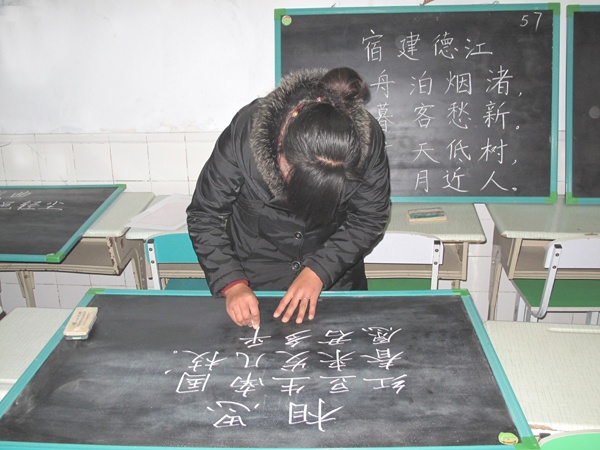 57
宿建德江
舟泊烟渚，
暮客愁新。
天低树，
月近人。
相思
红豆生南国，
春来发几枝．
愿君多